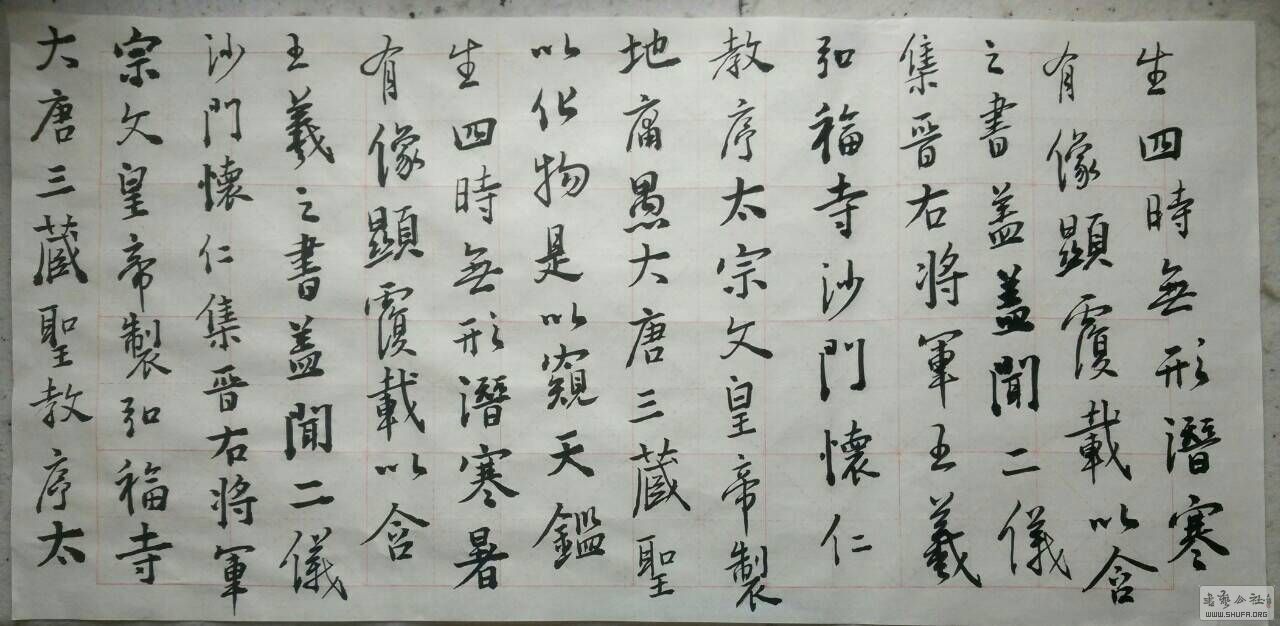 大唐三藏聖教序太
宗文皇帝製弘福寺
沙門懷仁集晉右將軍
王羲之書蓋聞二儀
有像顯覆載以含
生四時無形潛寒暑
以化物是以窺天鑑
地庸愚大唐三藏聖
教序太宗文皇帝製
弘福寺沙門懷仁
集晉右將軍王羲
之書蓋蓋聞二儀
有像顯覆載以含
生四時無形潛寒
WWW.SHUFA.ORG